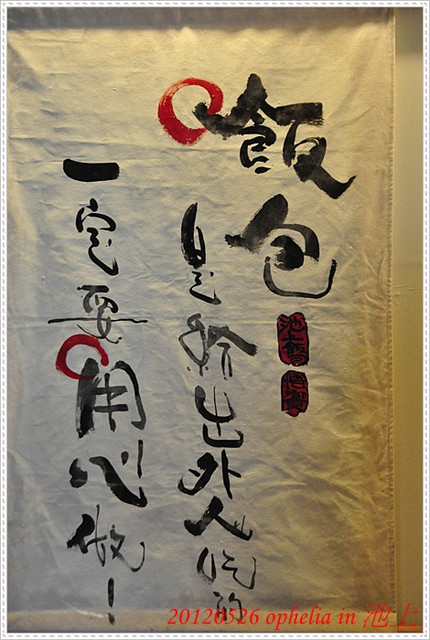 飯包
是給出外人吃的
一定要用心做!
20120526 ophelia in 池上